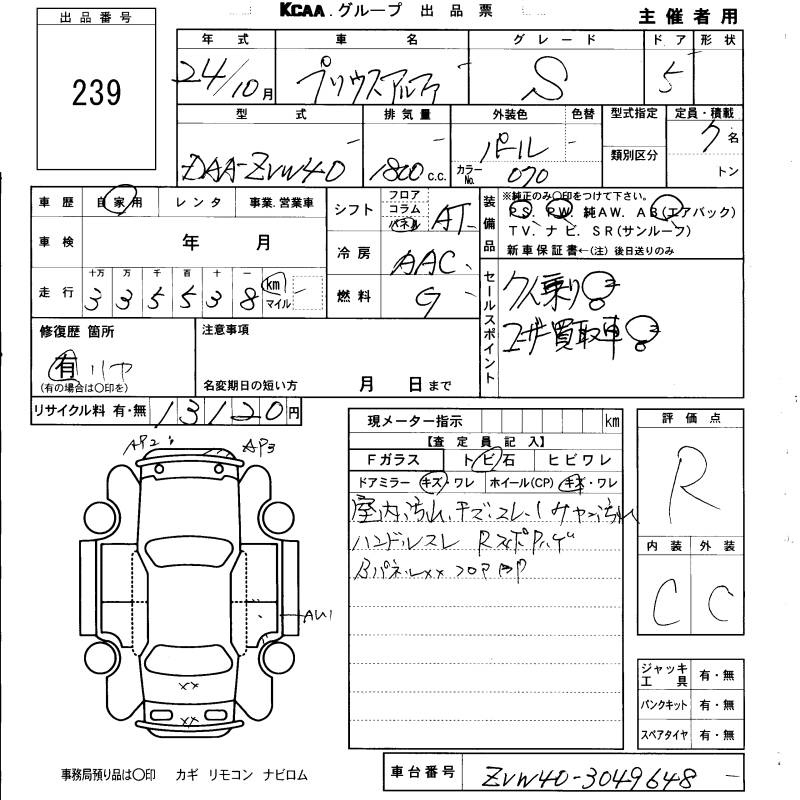 出品番号
KCAA.グループ 出品票
主催者用
239
年式 車名 グレード ドア 形状
24/10月 プリウスアルファ S 5
型式 排気量 外装色 色替 型式指定 定員・積載
DAA-ZVW40 1800c.c. パール カラーNo. 070 類別区分 7名
トン
車歴 自家用 レンタ 事業.営業車
車検 年 月
走行 十万 万 千 百 十 一
3 3 5 5 3 8 km マイル
シフト フロア コラム パネル AT
冷房 AAC
燃料 G
装備品
※純正のみ○印をつけて下さい。
PS. PW. 純AW. AB(エアバック)
TV. ナビ. SR(サンルーフ)
新車保証書←(注)後日送りのみ
セールスポイント
7人乗り!
ユーザー買取車!
修復歴 箇所
有
(有の場合は○印を)
注意事項
名変期日の短い方 月 日まで
リサイクル料 有・無 13120円
現メーター指示 km
【査定員記入】
Fガラス トビ石 ヒビワレ
ドアミラー キズ・ワレ ホイール(CP) キズ・ワレ
室内汚れ.キズ.スレ.
ハンドルスレ
Bパネルxx
評価点
R
内装 外装
C C
AP2
AP3
AU1
xx
xx
ジャッキ工具 有・無
パンクキット 有・無
スペアタイヤ 有・無
事務局預り品は○印 カギ リモコン ナビロム
車台番号 ZVW40-3049648